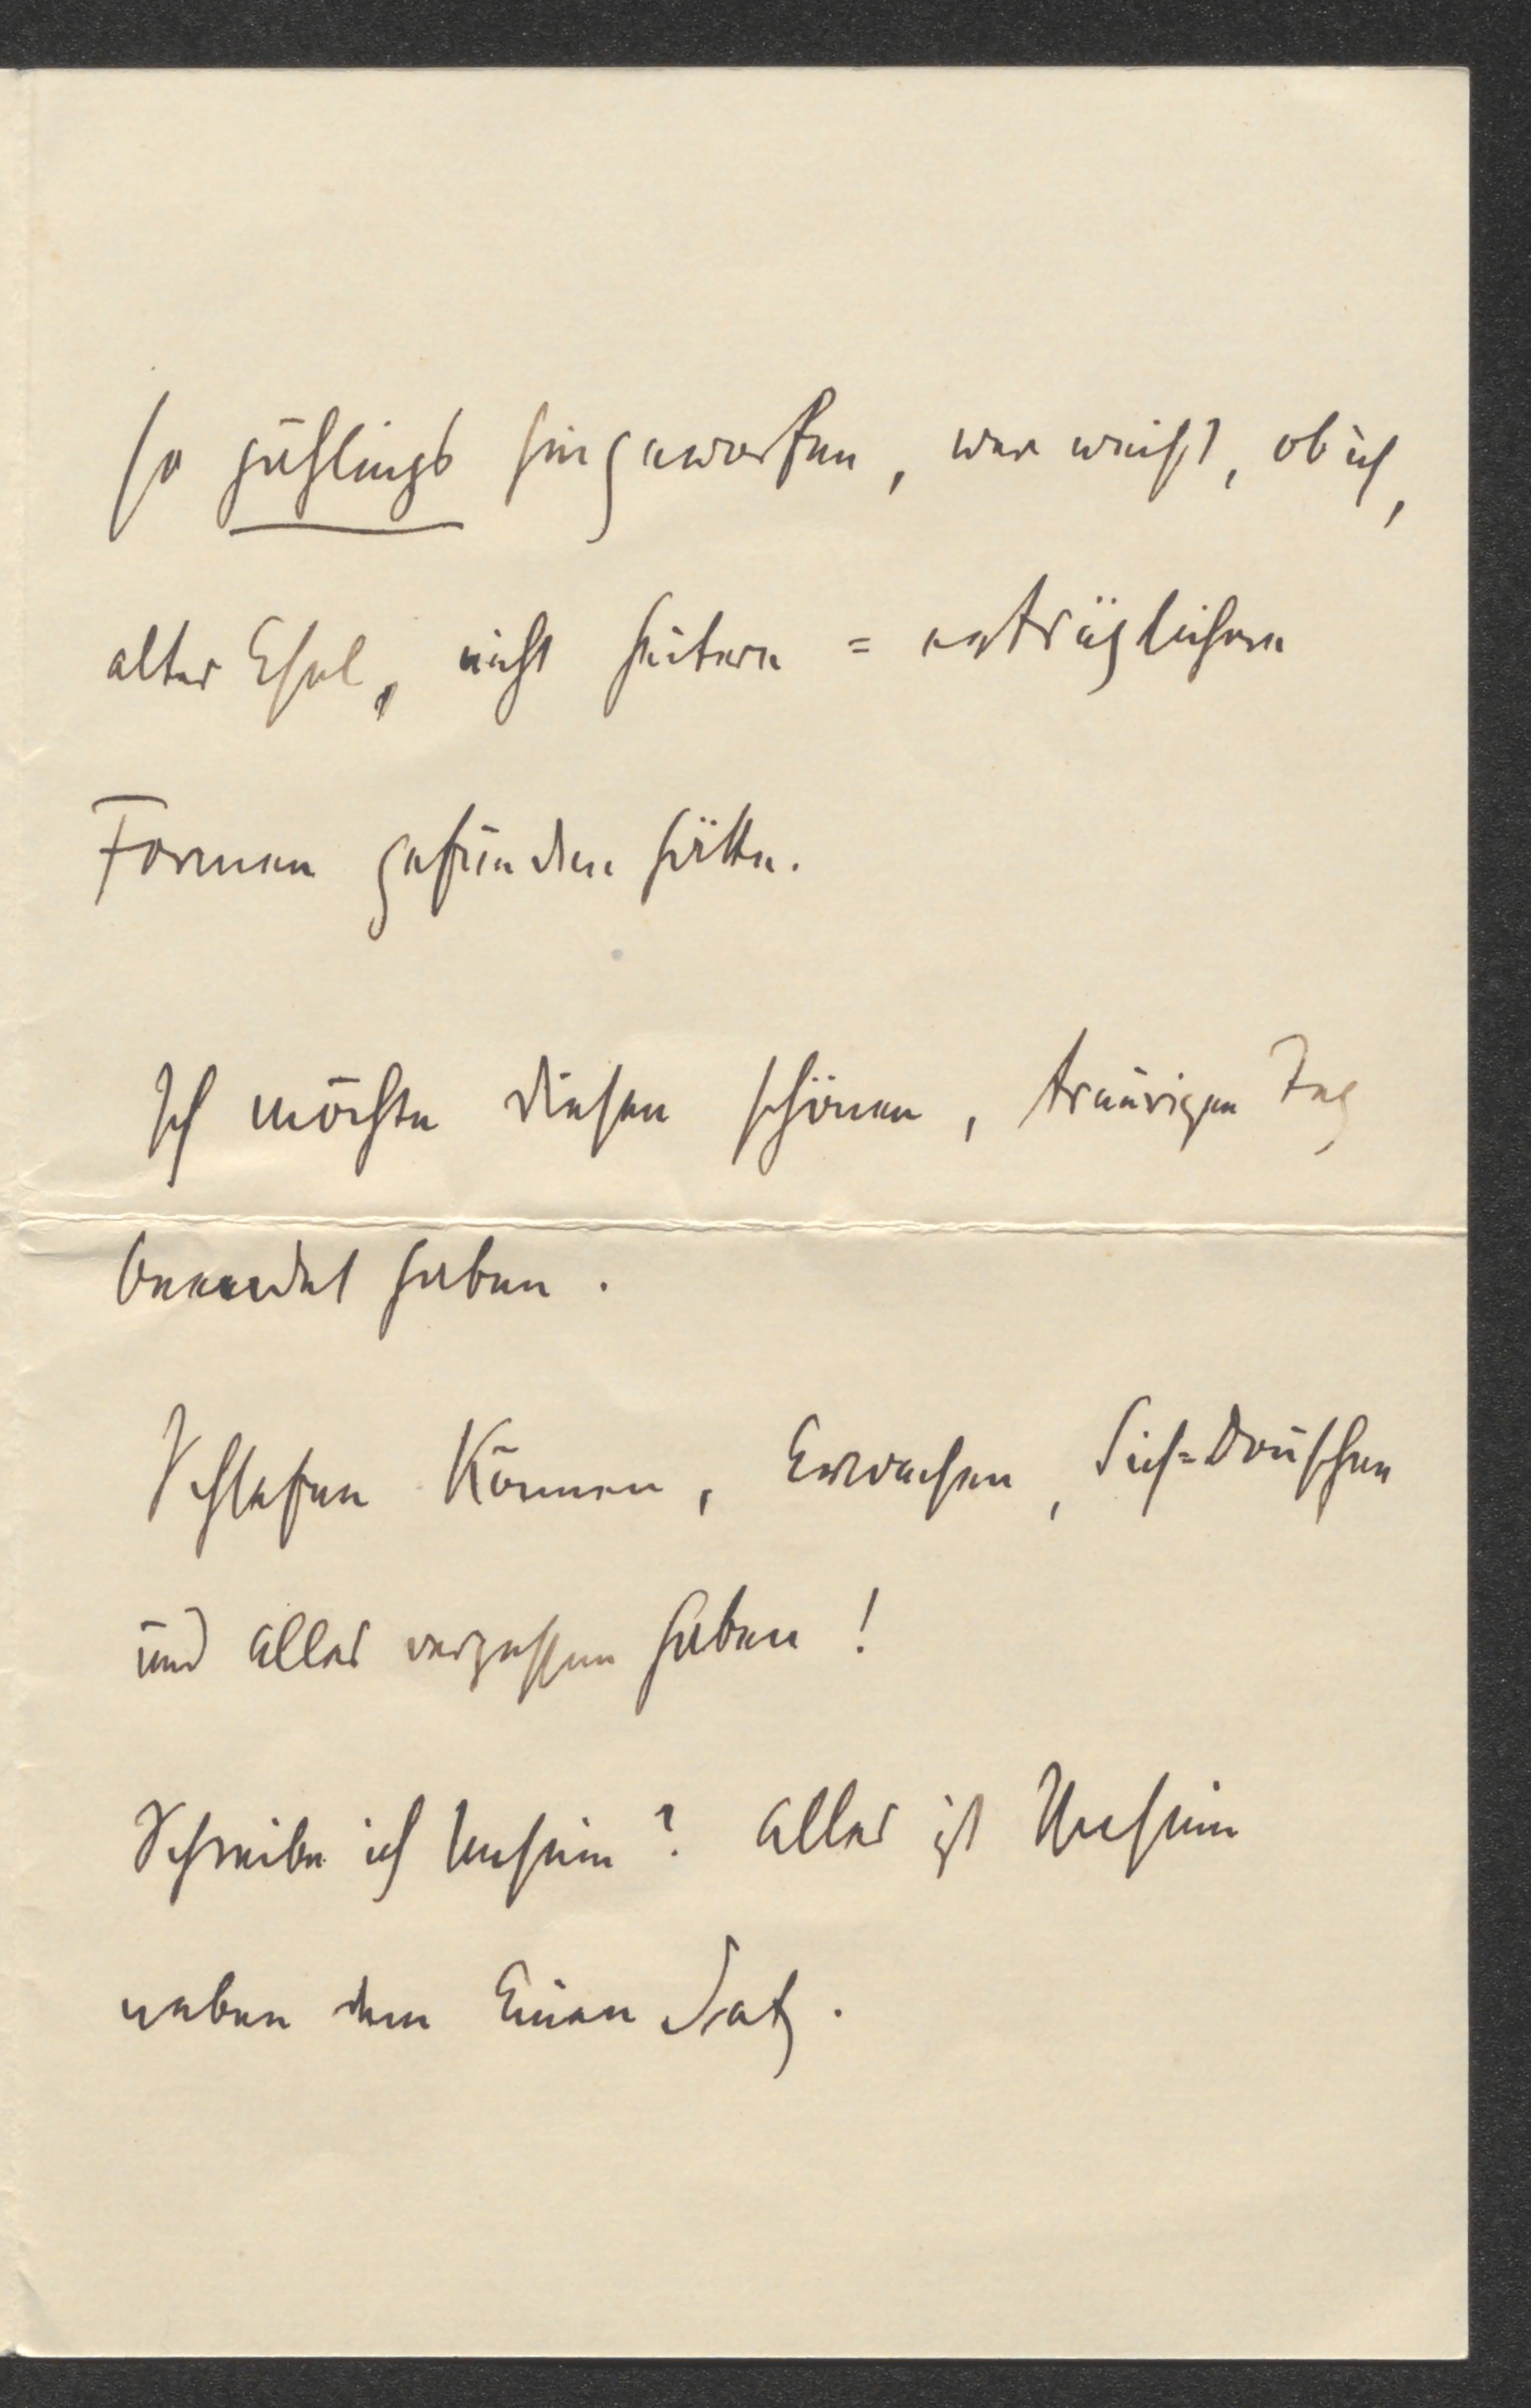 so jählings hingeworfen, wer weiß, ob ich,
alter Esel, nicht heitere = erträglichere
Formen gefunden hätte.
Ich möchte diesen schönen, traurigen Tag
beendet haben.
Schlafen Können, Erwachen, Sich=Douschen
und alles vergessen haben!
Schreibe ich Unsinn? Alles ist Unsinn
neben dem Einen Satz.